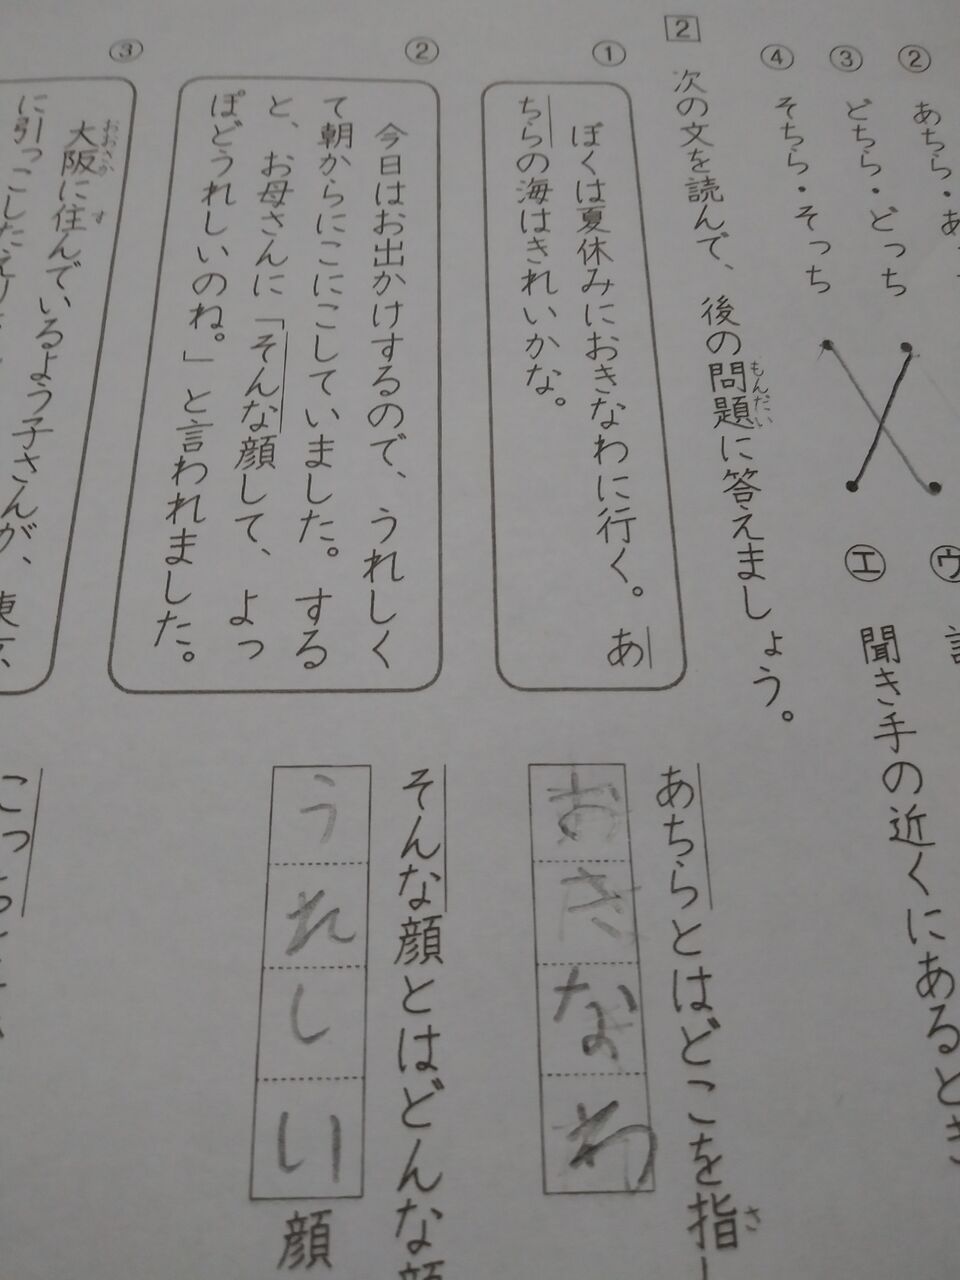 ② あちら・あ
③ どちら・どっち
④ そちら・そっち
㋒
㋓ 聞き手の近くにあるとき
2 次の文を読んで、後の問題に答えましょう。
もんだい
① ぼくは夏休みにおきなわに行く。あ
ちらの海はきれいかな。
あちらとはどこを指し
さ
おきなわ
② 今日はお出かけするので、うれしく
て朝からにこにこしていました。する
と、お母さんに「そんな顔して、よっ
ぽどうれしいのね。」と言われました。
そんな顔とはどんな顔
うれしい 顔
③ 大阪に住んでいるよう子さんが、東京
おおさか す
に引っこした
こっち